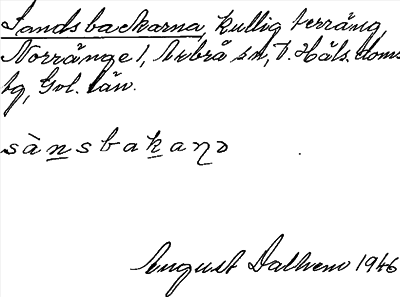 Sandsbackarna, kullig terräng
Norränge 1, Arbrå sn, V. Häls. doms.
tg, Gvl. län.
sànsbakanɔ
August Dalhem 1946